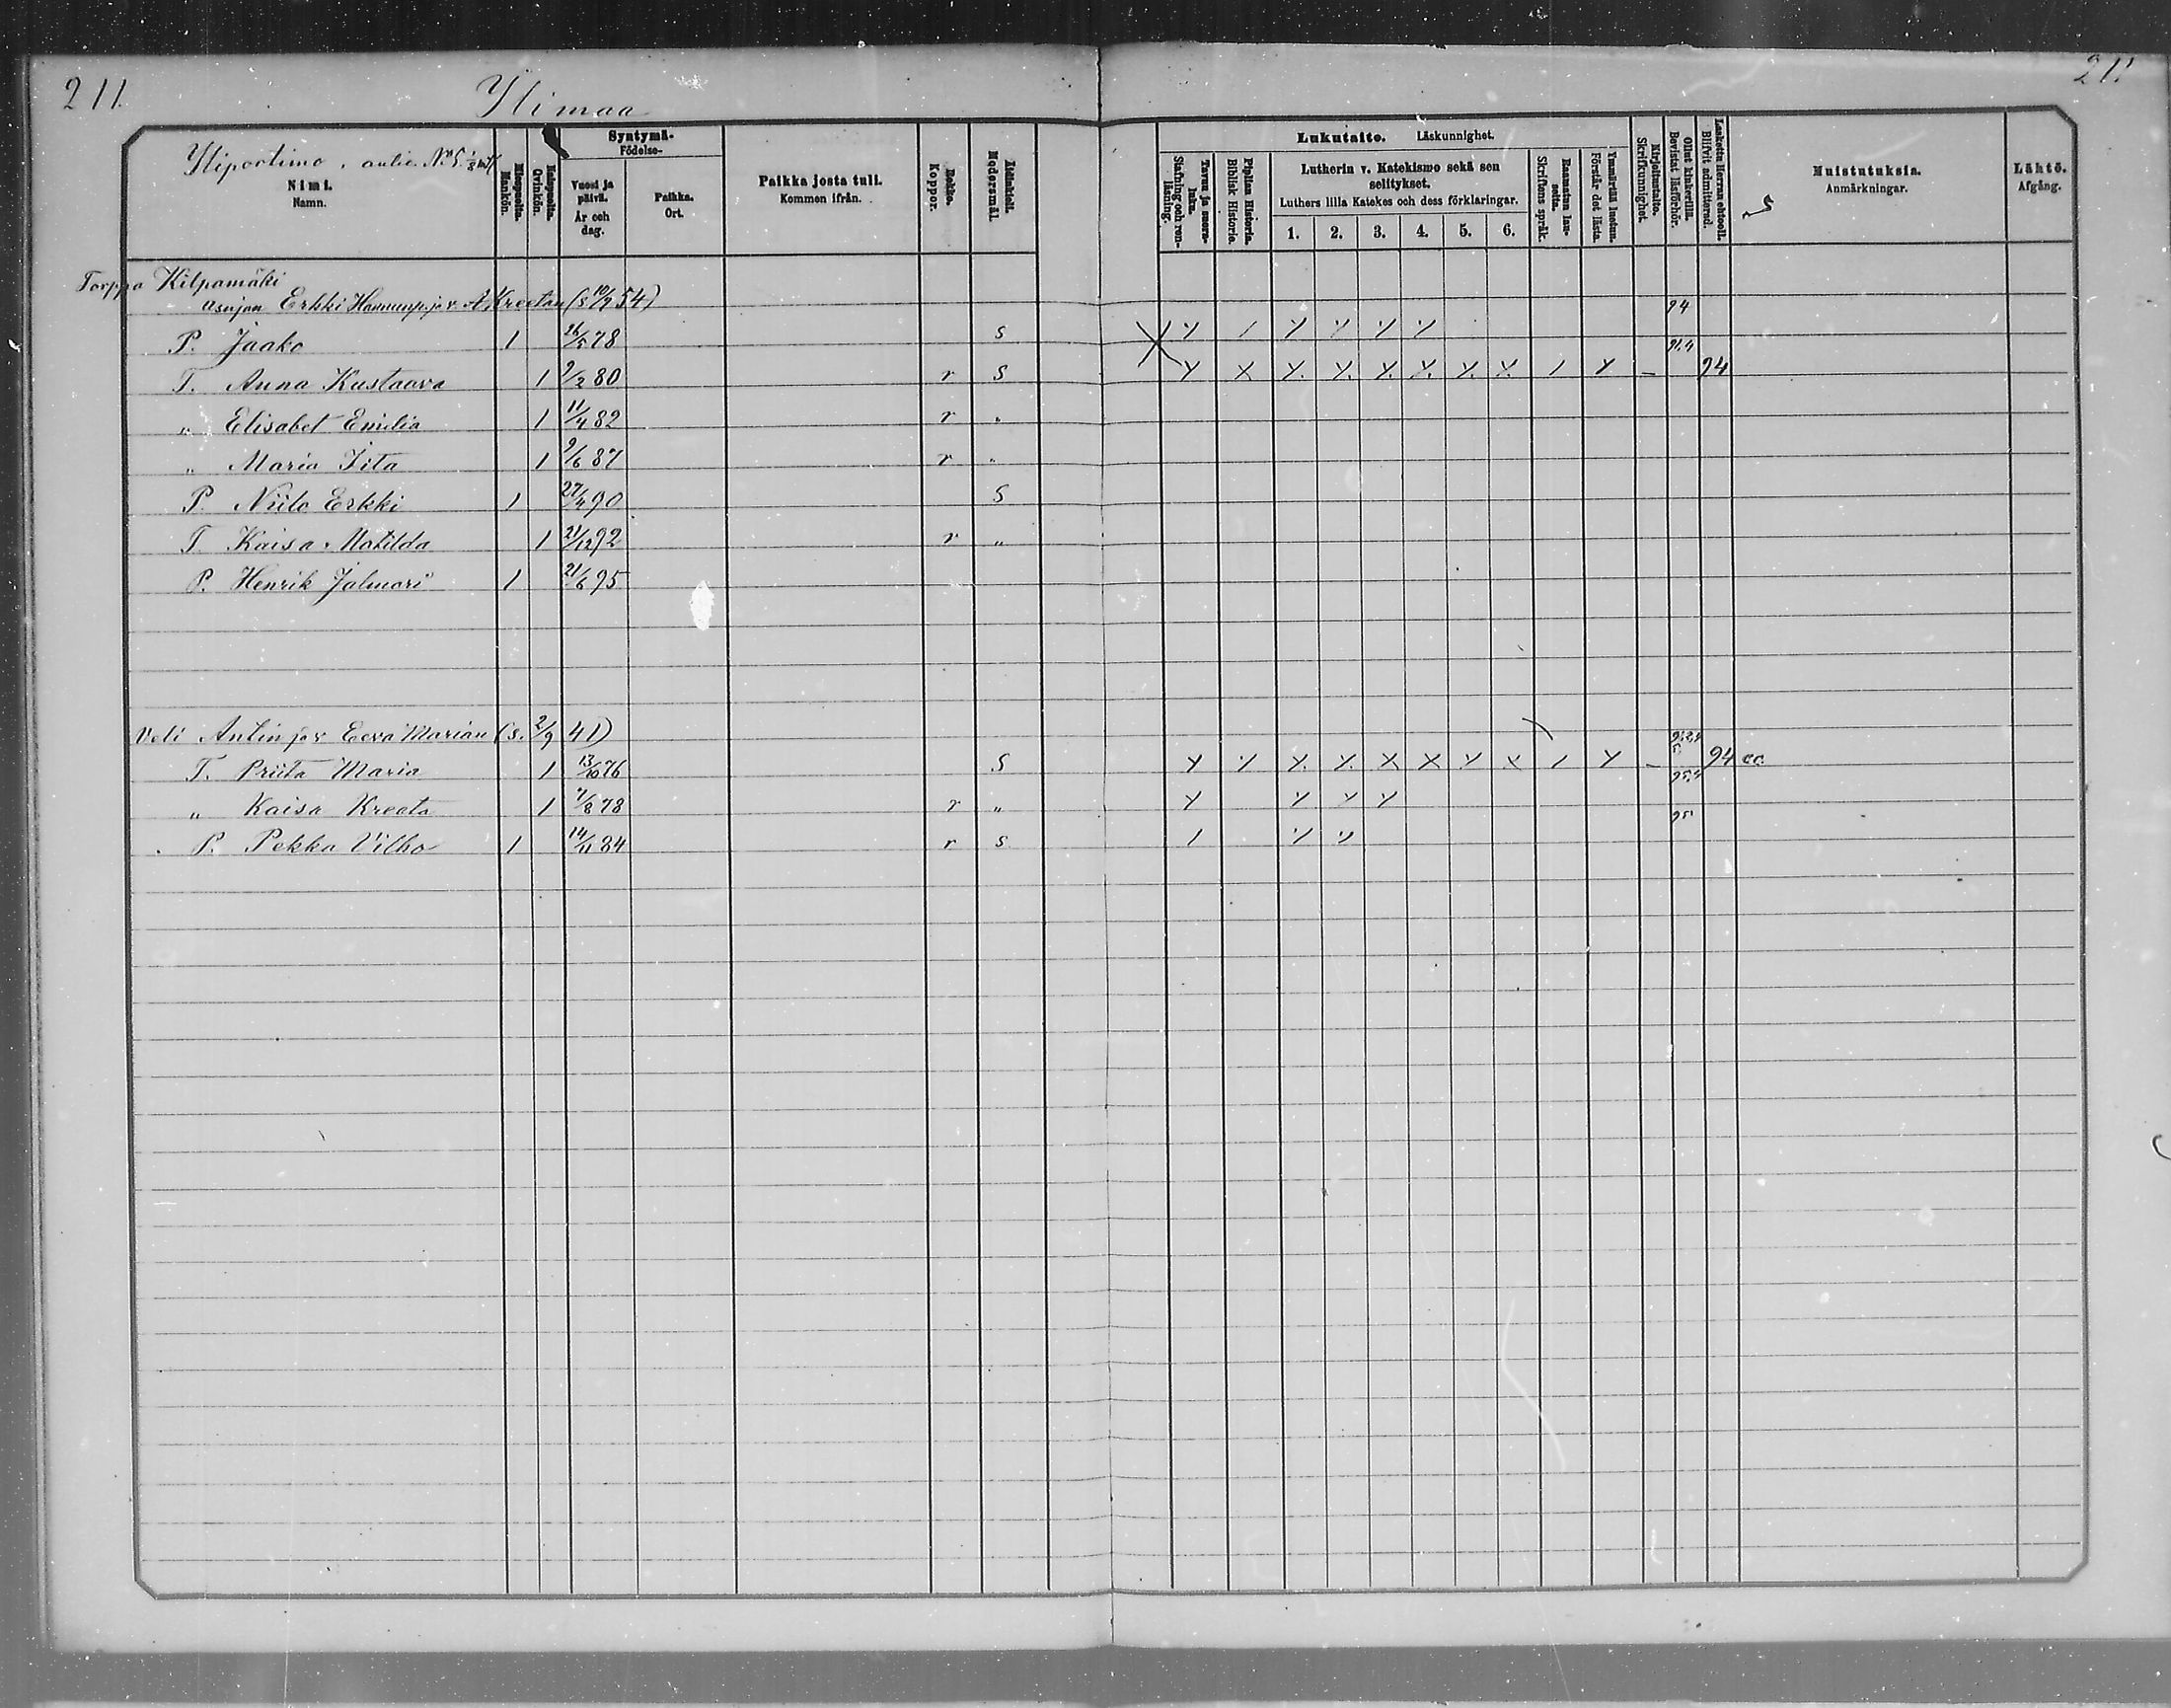 211
Ylimaa
211
Yliportimo
Nimi.
Namn.
Miespuolta.
Mankön.
Vaimopuolta.
Qvinkön.
Syntymä-
Födelse-
Vuosi ja päivä.
År och dag.
Paikka.
Ort.
Paikka josta tuli.
Kommen ifrån.
Rokko.
Koppor.
Äidinkieli.
Modersmål.
Lukutaito. Läskunnighet.
Tavuu ja suora-luku.
Stafning och ren-läsning.
Piplian Historia.
Biblisk Historie.
Lutherin v. Katekismo sekä sen selitykset.
Luthers lilla Katekes och dess förklaringar.
1. 2. 3. 4. 5. 6.
Raamatun lau-seita.
Skriftens språk.
Ymmärtää luetun.
Förstår det lästa.
Kirjoitustaito.
Skrifkunnighet.
Ollut kinkerillä.
Bevistat läsförhör.
Laskettu Herran ehtooll.
Blifvit admitterad.
Muistutuksia.
Anmärkningar.
Lähtö.
Afgång.
Torppa Kilpamäki
asujan Erkki
A. Kreetan (s 10/2 54) 94
P. Jaako 1 26/5 78 S
T. Anna Kustaava 1 9/2 80 r S 94
" Elisabet Emilia 1 11/4 82 r "
" Maria Iita 1 9/6 87 r "
P. Niilo Erkki 1 90 S
T. Kaisa Matilda 1 21/12 92 r "
P. Henrik Jalmari 1 21/6 95
Veli Antin ja v. Eeva Marian (s. 2/9 41)
T. Priita Maria 1 13/10 76 S 94 cc
" Kaisa Kreeta 1 7/8 78 r "
P. Pekka Vilho 1 14/11 84 r S 95